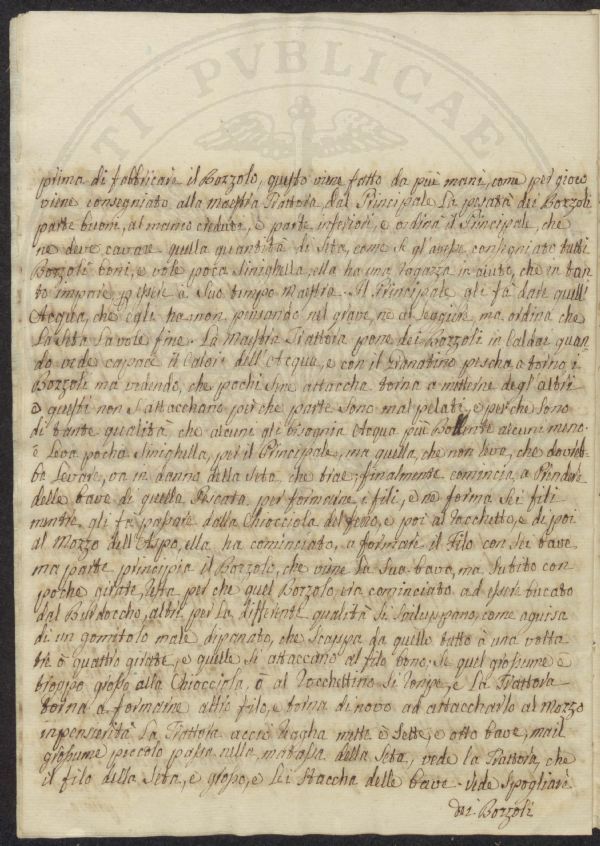 TI PVBLICAE
prima di fabbricare il Bozzolo, questo viene fatto da più mani, come per gioco
viene consegniato alla maestra Trattora dal Principale La pesata dei Bozzoli
parte buoni, al manco creduto, e parte inferiori, e ordina il Principale, che
ne deve cavare quella quantità di Seta, come se gl'avesse consegniato tutti
Bozzoli boni, e vole poca Sinighella, ella ha una ragazza in aiuto, che in tan
to impare p essere à Suo tempo Maestra. Il Principale gli fà dare quell'
Acqua, che egli ha non pensando nel grave, nè al leggiere ma ordina che
La Seta La vole fine. La Maestra Trattora pone dei Bozzoli in Caldaie quan
do vede capace il Calore dell'Acqua, e con il Granatino pescha a torno i
Bozzoli ma vedendo, che pochi sine attaccha torna a metterne degl'altri
e questi non S'attacchano perche parte Sono mal pelati, e perche sono
di tante qualità che alcuni gli bisognia Acqua più Bollente alcuni meno.
e Leva pocha Sinighella, per il Principale, ma quella, che non leva, che dovreb-
be Levare, va in danno della Seta, che trae, finalmente comincia a Prendere
delle bave di quella Pescata per formaine i fili, e ne forma Sei fili
mentre gli fà passare dalla Chiocciola del ferro, e poi al Rocchetto, e di poi
al Mozzo dell'Aspo, ella ha cominciato, a formare il Filo con Sei bave
ma parte principia il Bozzolo, che viene la Sua bava, ma Subito con
poche girate resta per che quel Bozzolo, era cominciato ad essere bucato
dal Burdoccho, altri per la differente qualità si sviluppano, come aguisa
di un gomitolo male dipanato, che Scappa da quelle tutto à una volta
tre ò quattro girate, e quelle si attaccano al filo bono. Se quel grossume è
troppo grosso alla Chiocciola, ò al Rocchettino si ronpe, e La Trattora
torna a formaine altro filo, e torna di novo ad attaccharlo al Mozzo
inpensarità La Trattora acciò vagha mette è Sette, e otto bave, ma il
grossume piccolo passa nella matassa della Seta, vede la Trattora, che
il filo della Seta, e grosso, e Lei Staccha delle bave. vede Spogliare
dei Bozzoli